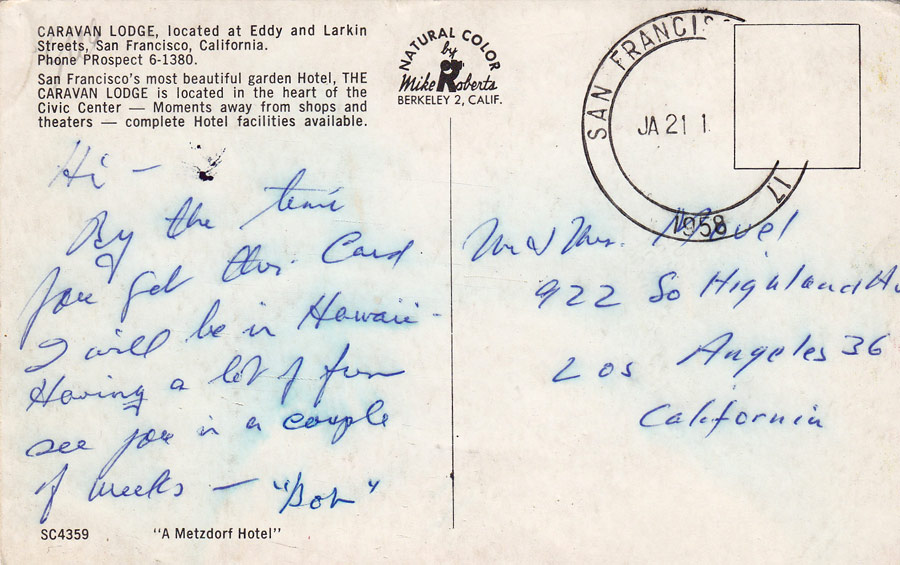 CARAVAN LODGE, located at Eddy and Larkin
Streets, San Francisco, California.
Phone PRospect 6-1380.
San Francisco's most beautiful garden Hotel, THE
CARAVAN LODGE is located in the heart of the
Civic Center — Moments away from shops and
theaters — complete Hotel facilities available.
NATURAL COLOR
by
Mike Roberts
BERKELEY 2, CALIF.
SAN FRANCISC
JA 21 1
17
1958
Hi —
By the time
you get this Card
I will be in Hawaii -
Having a lot of fun
see you in a couple
of weeks — "Bob"
Mr & Mrs.
922 So Highland
Los Angeles 36
California
SC4359
"A Metzdorf Hotel"